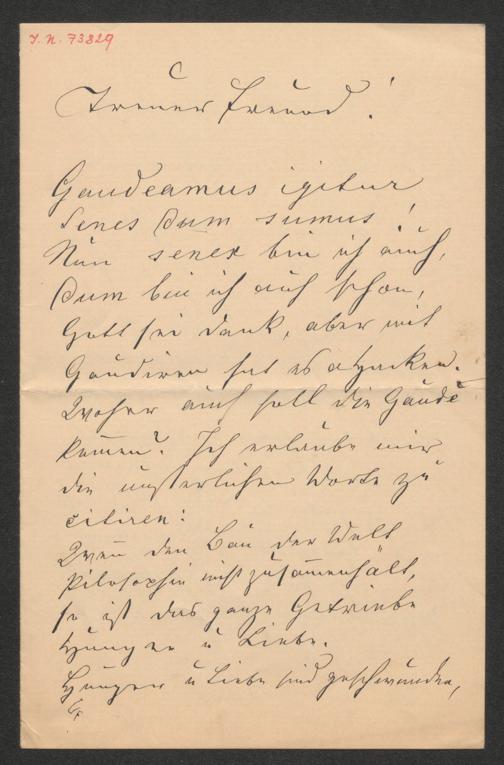 J. N. 73829
Treuer Freund!
Gaudeamus igitur
Senes dum sumus!
Nun senex bin ich auch,
dum bin ich auch schon,
Gott sei Dank, aber mit
Gaudiren hat es a Hacken.
Woher auch soll die Gaude
kom̅en? Ich erlaube mir
die unsterblichen Worte zu
citiren:
Wen̅ den Bau der Welt
Philosophie nicht zusam̅enhält,
so ist das ganze Getriebe
Hunger u Liebe.
Hunger u Liebe sind geschwunden,